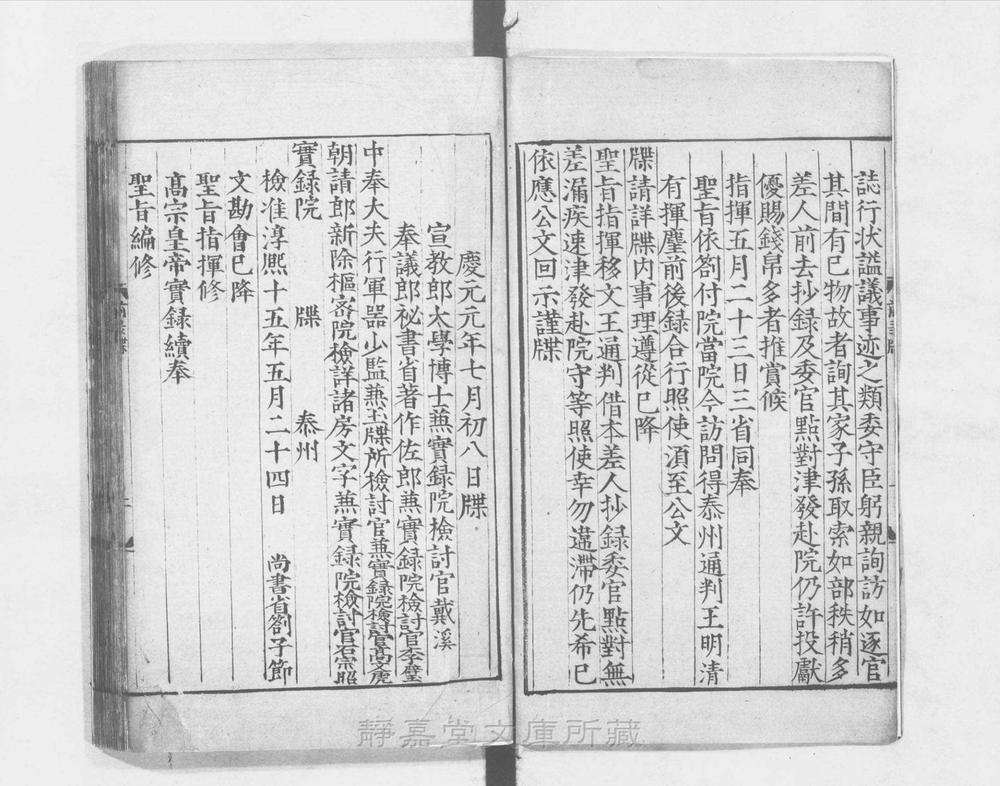 誌行状謚議事迹之類委守臣躬親詢訪如逐官
其間有已物故者詢其家子孫取索如部秩稍多
差人前去抄録及委官點對津發赴院仍許投獻
優賜錢帛多者推賞候
指揮五月二十三日三省同奉
聖旨依劄付院當院今訪問得泰州通判王明清
有揮麈前後録合行照使湏至公文
牒請詳牒内事理遵從已降
聖旨指揮移文王通判借本差人抄録委官點對無
差漏疾速津發赴院守等照使幸勿違滯仍先希已
依應公文回示謹牒
慶元元年七月初八日牒
宣教郎太學博士兼實録院檢討官戴溪
奉議郎祕書省著作佐郎兼實録院檢討官李璧
中奉大夫行軍器少監兼玉牒所檢討官兼實録院檢討官高文虎
朝請郎新除樞密院檢詳諸房文字兼實録院檢討官石宗昭
實録院 牒 泰州
檢准淳熙十五年五月二十四日 尚書省劄子節
文勘會已降
聖旨指揮修
高宗皇帝實録續奉
聖旨編修
靜嘉堂文庫所藏